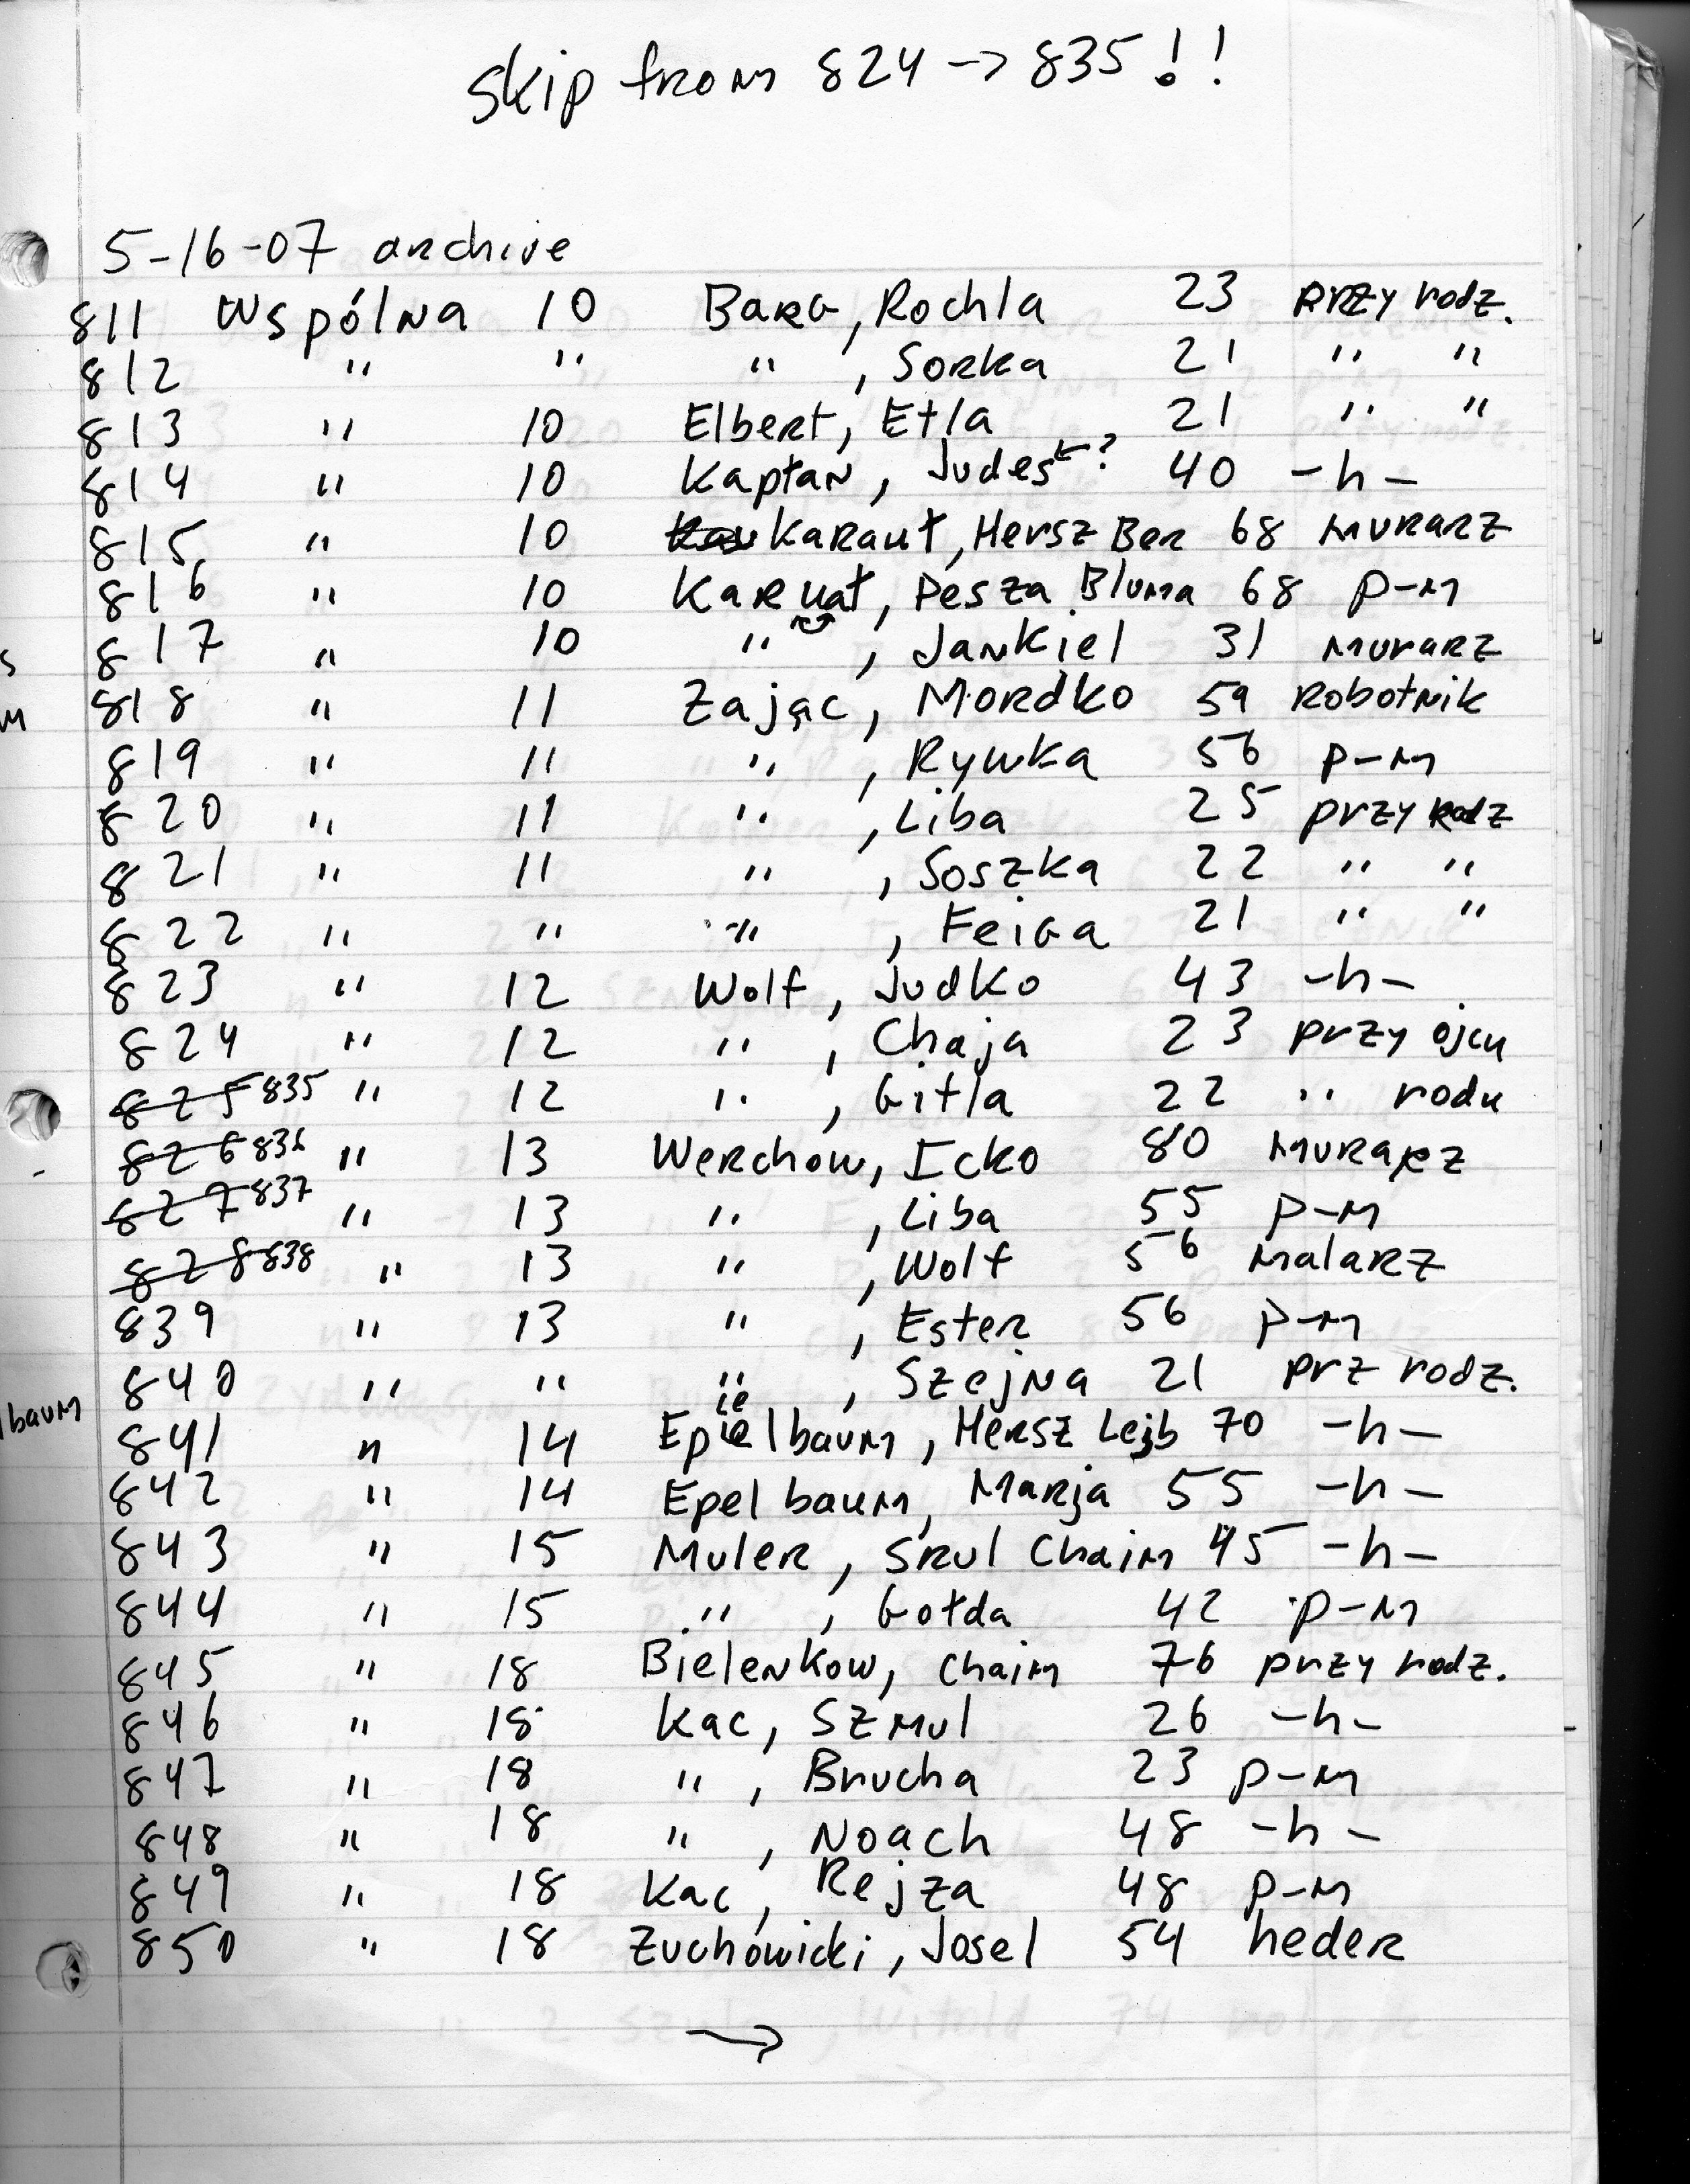 skip from 824 -> 835!!
5-16-07 archive
811 Wspólna 10 Barg, Rochla 23 przy rodz.
812 " " " , Sorka 21 " "
813 " 10 Elbert, Etla 21 " "
814 " 10 Kapłan, Judes ←? 40 -h-
815 " 10 Karauł, Hersz Ber 68 murarz
816 " 10 Karuał, Pesza Bluma 68 p-m
817 " 10 " , Jankiel 31 murarz
818 " 11 Zając, Mordko 59 robotnik
819 " 11 " , Rywka 56 p-m
820 " 11 " , Liba 25 przy rodz
821 " 11 " , Soszka 22 " "
822 " " " , Feiga 21 " "
823 " 12 Wolf, Judko 43 -h-
824 " 12 " , Chaja 23 przy ojcu
825 835 " 12 " , Gitla 22 " rodu
826 836 " 13 Werchow, Icko 80 murarz
827 837 " 13 " , Liba 55 p-m
828 838 " 13 " , Wolf 56 malarz
839 " 13 " , Ester 56 p-m
840 " " " , Szejna 21 prz rodz.
lbaum 841 " 14 Epielbaum, Hersz Lejb 70 -h-
842 " 14 Epelbaum, Marja 55 -h-
843 " 15 Muler, Srul Chaim 45 -h-
844 " 15 " , Gołda 42 p-m
845 " 18 Bielenkow, Chaim 76 przy rodz.
846 " 18 Kac, Szmul 26 -h-
847 " 18 " , Brucha 23 p-m
848 " 18 " , Noach 48 -h-
849 " 18 Kac, Rejza 48 p-m
850 " 18 Zuchowicki, Josel 54 heder
→